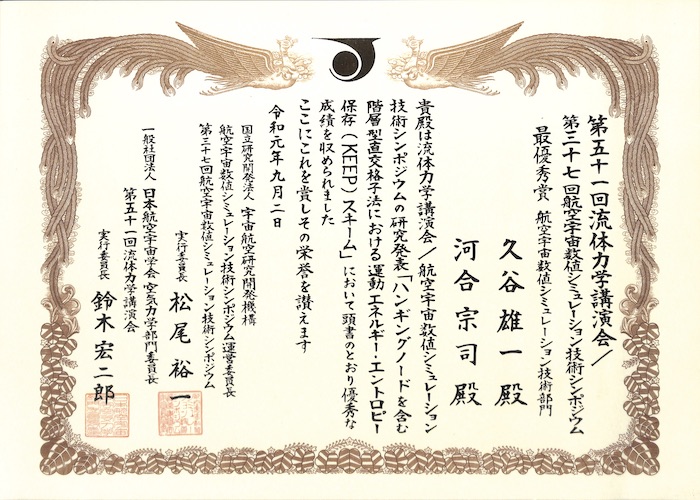 第五十一回流体力学講演会／
第三十七回航空宇宙数値シミュレーション技術シンポジウム
最優秀賞 航空宇宙数値シミュレーション技術部門
久谷雄一殿
河合宗司殿
貴殿は流体力学講演会／航空宇宙数値シミュレーション
技術シンポジウムの研究発表「ハンギングノードを含む
階層型直交格子法における運動エネルギー・エントロピー
保存（KEEP）スキーム」において頭書のとおり優秀な
成績を収められました
ここにこれを賞しその栄誉を讃えます
令和元年九月二日
国立研究開発法人 宇宙航空研究開発機構
航空宇宙数値シミュレーション技術シンポジウム運営委員長
第三十七回航空宇宙数値シミュレーション技術シンポジウム
実行委員長 松尾裕一
一般社団法人 日本航空宇宙学会 空気力学部門委員長
第五十一回流体力学講演会
実行委員長 鈴木宏二郎